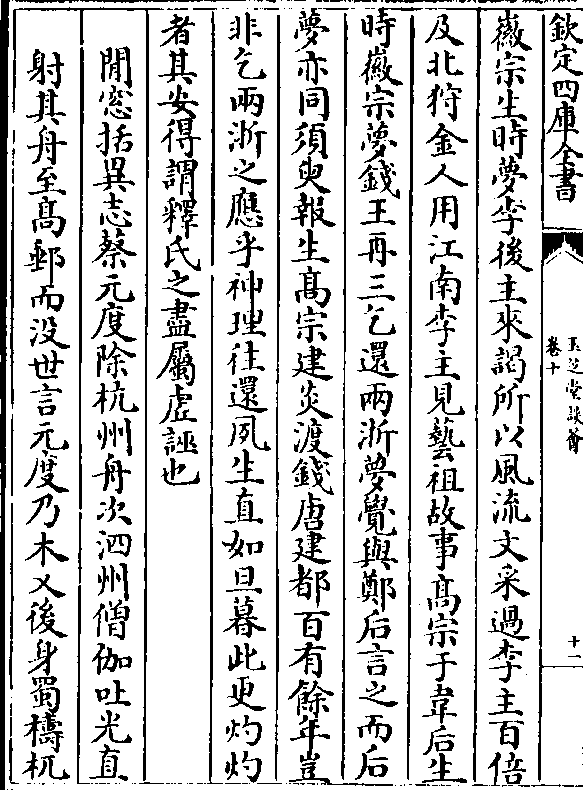 欽定四庫全書
玉芝堂談薈
卷十
十一
徽宗生時夢李後主來謁所以風流文采過李主百倍
及北狩金人用江南李主見藝祖故事髙宗于韋后生
時徽宗夢錢王再三乞還兩浙夢覺與鄭后言之而后
夢亦同須臾報生髙宗建炎渡錢唐建都百有餘年豈
非乞兩浙之應乎神理往還夙生直如旦暮此更灼灼
者其安得謂釋氏之盡屬虛誣也
閒窓括異志蔡元度除杭州舟次泗州僧伽吐光直
射其舟至髙郵而没世言元度乃木叉後身蜀檮杌